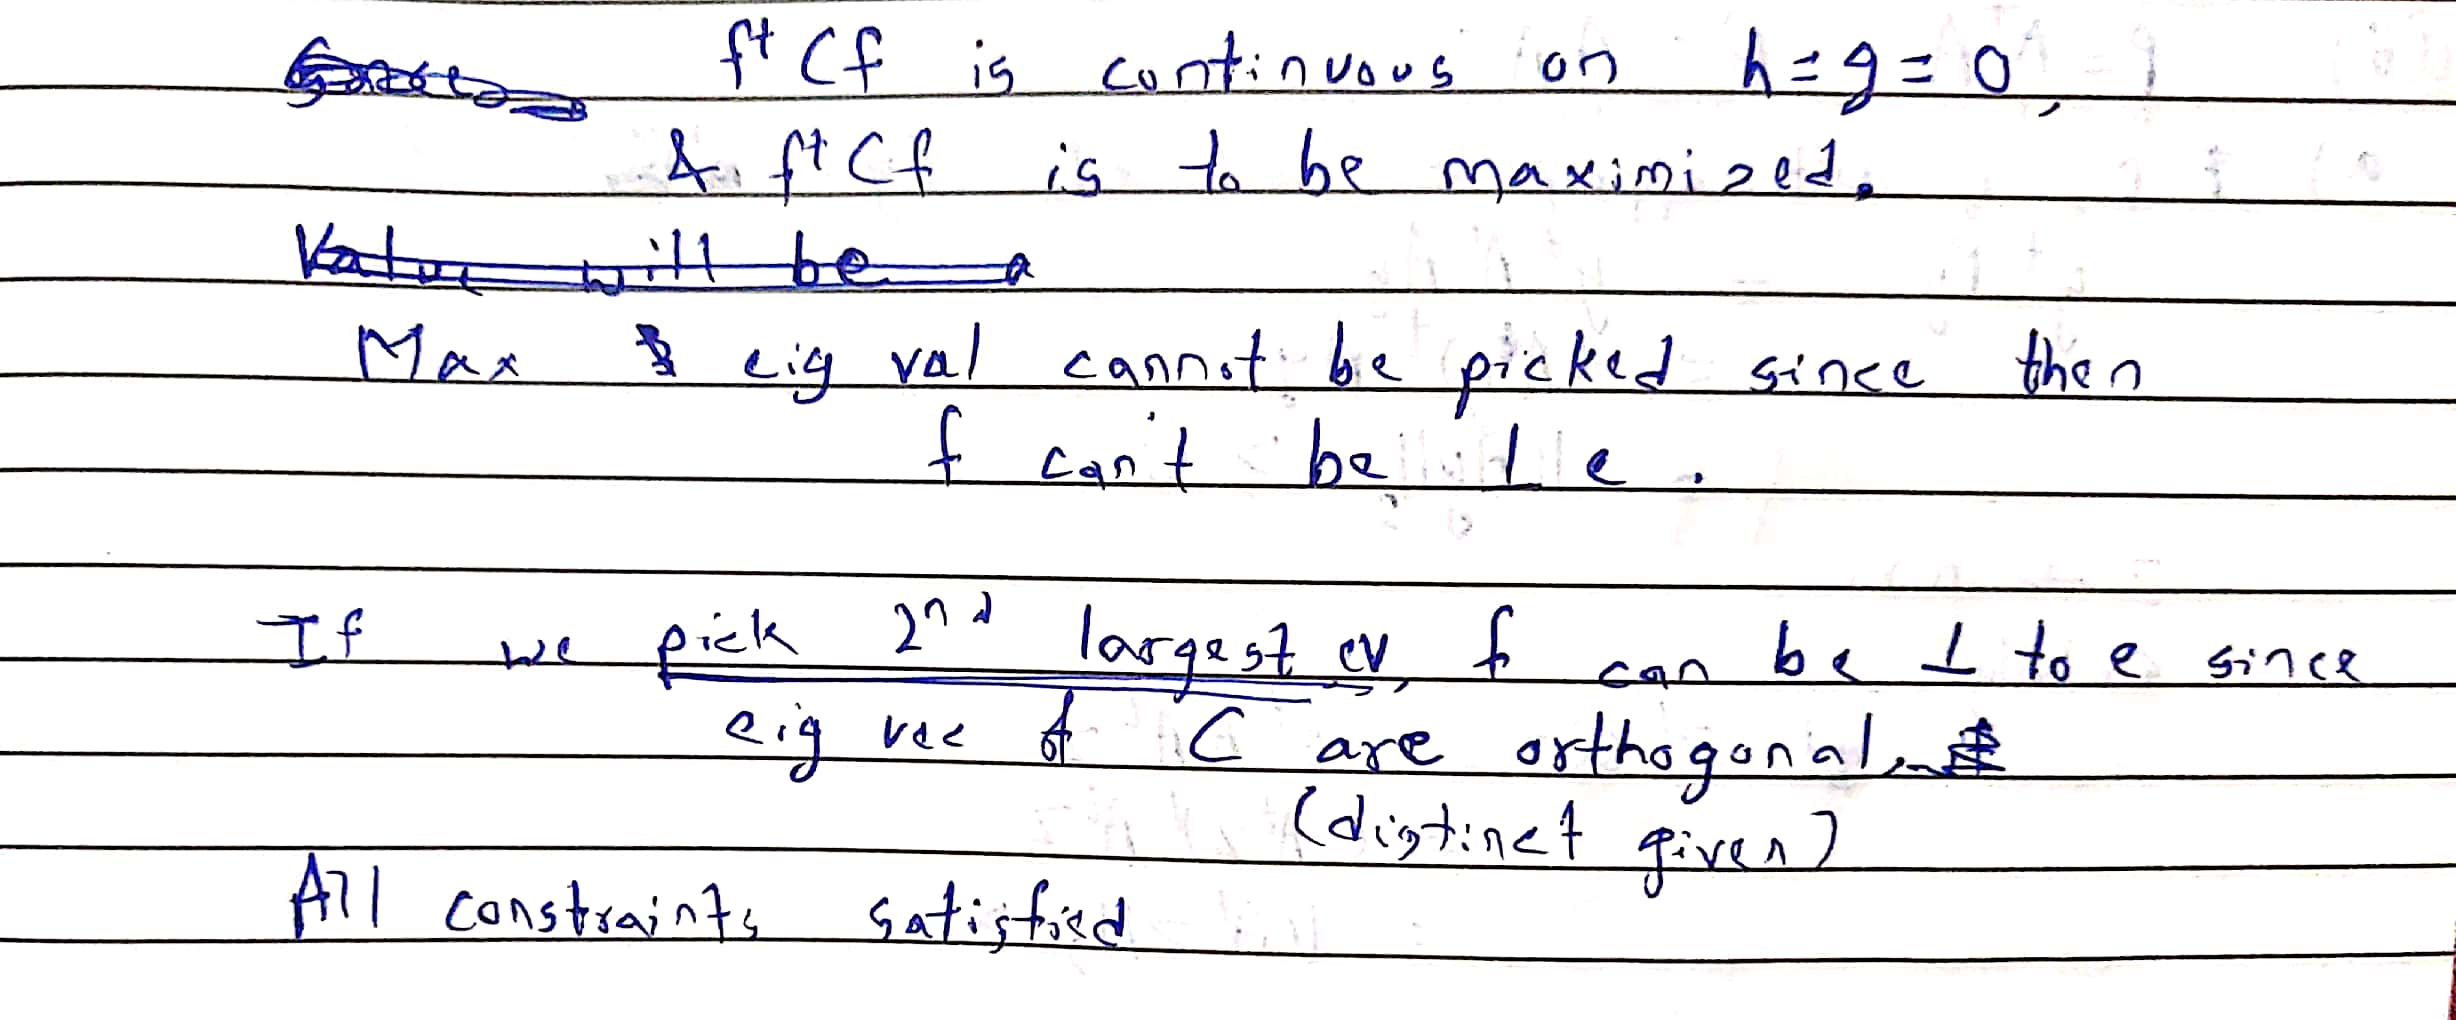 fᵗ Cf is continuous on h = g = 0,
& fᵗ Cf is to be maximized.
Value will be a
Max eig val cannot be picked since then
f can't be ⊥ e.
If we pick 2nd largest ev, f can be ⊥ to e since
eig vec of C are orthogonal.
(distinct given)
All constraints satisfied